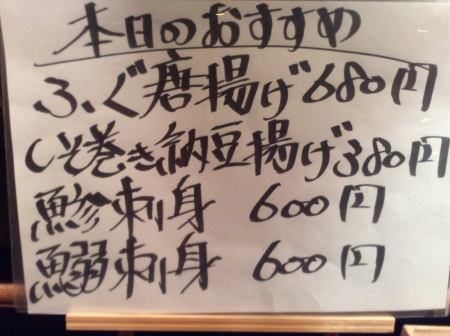 本日のおすすめ
ふぐ唐揚げ680円
しそ巻き納豆揚げ380円
鯵刺身 600円
鰯刺身 600円